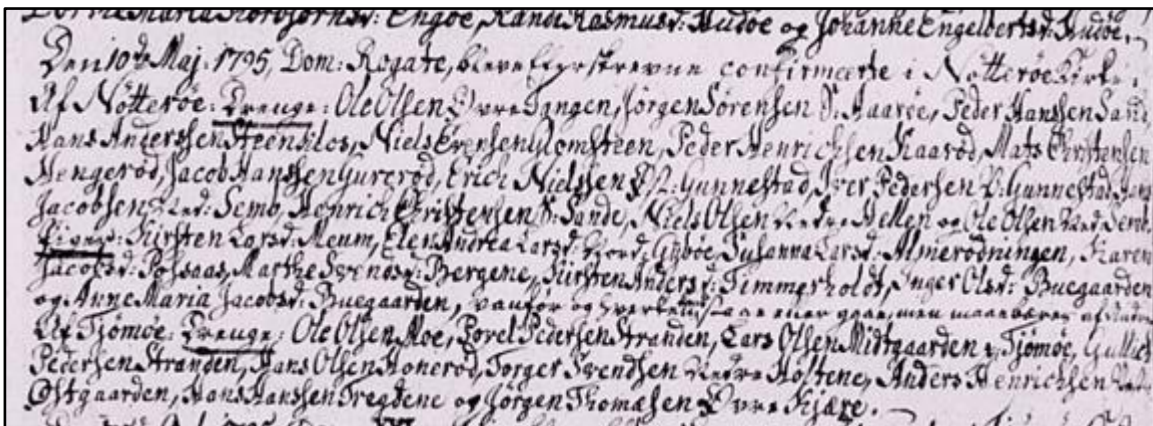 Maria Torbjørnsd: Engøe, Randi Rasmusd: Hudøe og Johanne Engelbertsd: Hudøe.
Den 10de Maj: 1795, Dom: Rogate, bleve Efterskrevne confirmerte i Nøtterøe Kirke:
Af Nøtterøe: Drenge: Ole Olsen Øvre Tangen, Jørgen Sørensen S: Aarøe, Peder Hanssen Sand,
Hans Anderssen Steenskos, Niels Evensen Glomsteen, Peder Henrichsen Kaarød, Mats Christensen
Hengerød, Jacob Hanssen Gurerød, Erich Nielssen N: Gunnestad, Iver Pedersen Ø: Gunnestad, Hans
Jacobsen Ned: Semb, Henrich Christensen S: Sande, Niels Olsen Nedre Hellen og Ole Olsen Ned Semb.
Piger: Kirsten Larsd: Meum, Elen Andrea Larsd: Gipøe, Susanna Larsd: Almerødningen, Karen
Jacobsd: Marthe Svendsd: Bergene, Kirsten Andersd: Timmerholdt, Inger Olsd: Buegaarden
og Anne Maria Jacobsd: Buegaarden, vanfør og gaae, men maae bæres af
Af Tjømøe: Drenge: Ole Olsen Moe, Povel Pedersen Stranden, Lars Olsen Midtgaarden i Tjømøe, Gullich
Pedersen Stranden, Hans Olsen Honerød, Torger Svendsen Nedre Holtene, Anders Henrichsen
Østgaarden, Hans Hanssen Tregdene og Jørgen Thomasen Øvre Kjære.